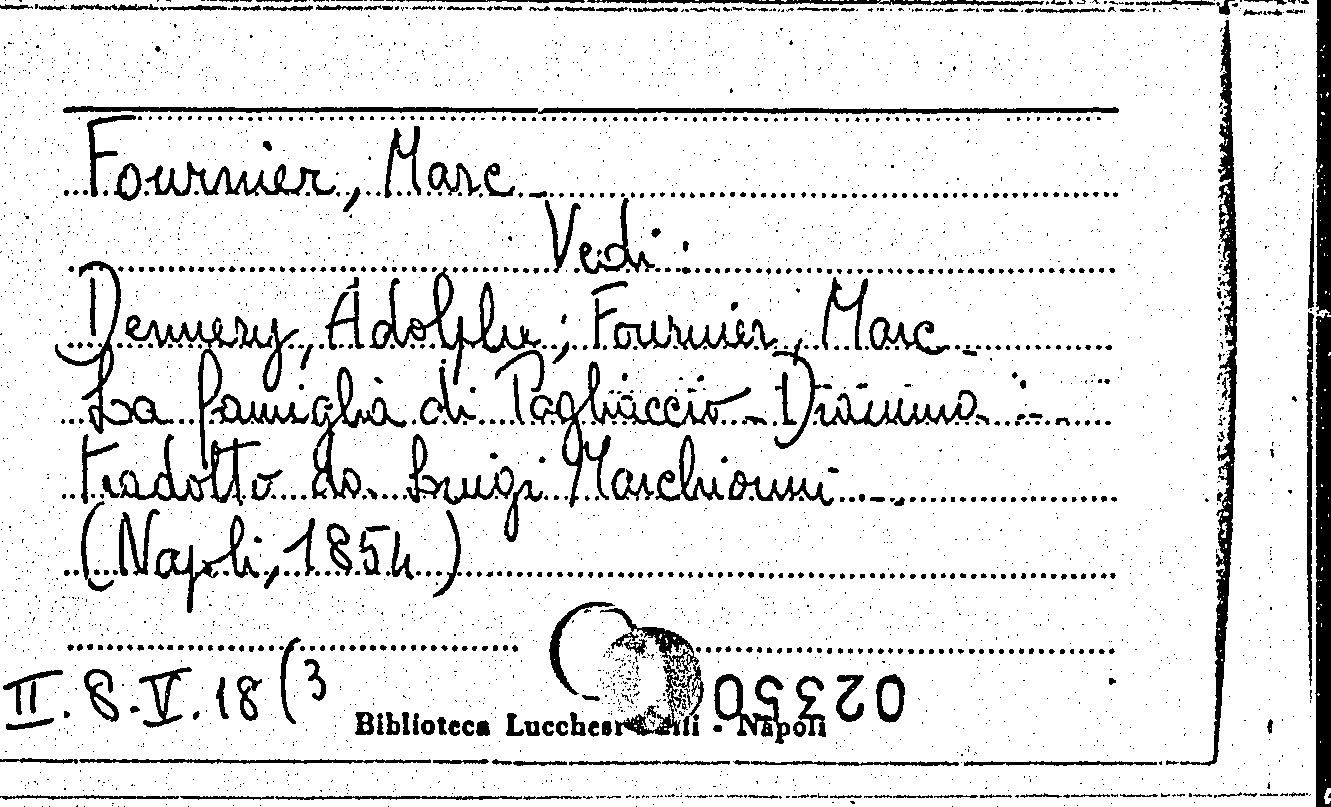 Fournier, Marc -
Vedi:
Dennery, Adolphe; Fournier, Marc -
La famiglia di Pagliaccio - Dramma -
tradotto da Luigi Marchionni -
(Napoli, 1854)
II. 8. V. 18 (3
02350
Biblioteca - Napoli